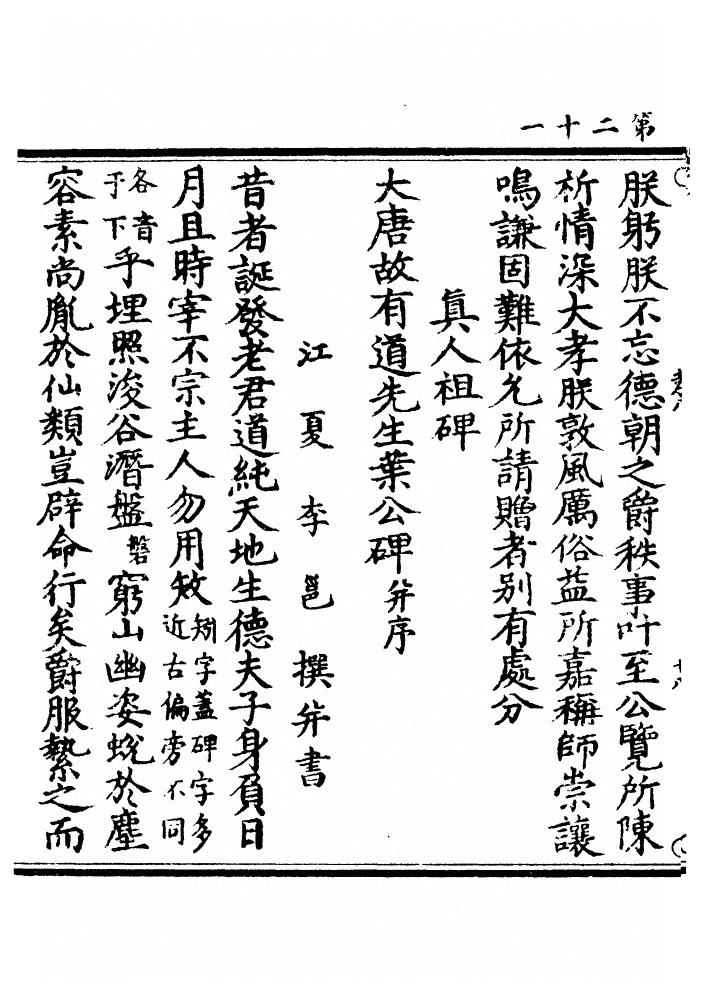 第二十一
朕躬朕不忘德朝之爵秩事叶至公覽所陳
析情深大孝朕敦風厲俗益所嘉稱師崇讓
鳴謙固難依允所請贈者别有處分
真人祖碑
大唐故有道先生葉公碑并序
江夏李邕撰并書
昔者誕發老君道純天地生德夫子身負日
月且時宰不宗主人勿用矧字蓋碑字多近古偏旁不同
各音于下乎埋照浚谷潛盤磐窮山幽姿蛻於塵
容素尚胤於仙類豈辟命行矣爵服縶之而
十八